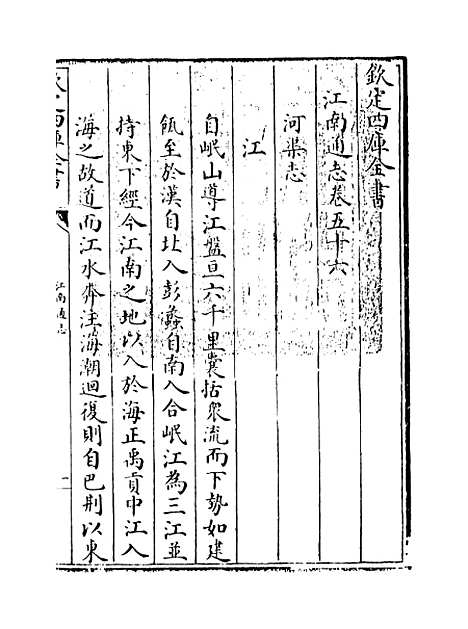 欽定四庫全書
江南通志卷五十六
河渠志
江
自岷山導江盤亘六千里囊括衆流而下勢如建
瓴至於漢自北入彭蠡自南入合岷江為三江並
持東下經今江南之地以入於海正禹貢中江入
海之故道而江水奔注海潮迴復則自巴荆以東
欽定四庫全書
江南通志